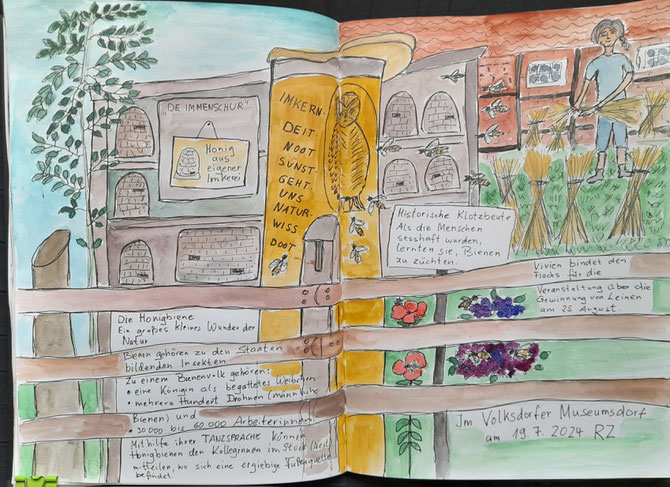 "DE IMMENSCHUR"
Honig
aus
eigener
Imkerei
IMKERN
DEIT
NOOT
SUNST
GEHT
UNS
NATUR-
WISS
DOOT
Historische Klotzbeute
Als die Menschen
sesshaft wurden,
lernten sie, Bienen
zu züchten.
Vivien bindet den
Flachs für die
Veranstaltung über die
Gewinnung von Leinen
am 25. August
Die Honigbiene
Ein großes kleines Wunder der
Natur
Bienen gehören zu den Staaten
bildenden Insekten
Zu einem Bienenvolk gehören:
• eine Königin als begattetes Weibchen
• mehrere Hundert Drohnen (männliche
Bienen) und
• 30000 bis 60000 Arbeiterinnen
Mit hilfe ihrer TANZSPRACHE können
Honigbienen den Kolleginnen im Stock (Nest)
mitteilen, wo sich eine ergiebige Futterquelle
befindet.
Im Volksdorfer Museumsdorf
am 19.7.2024 RZ